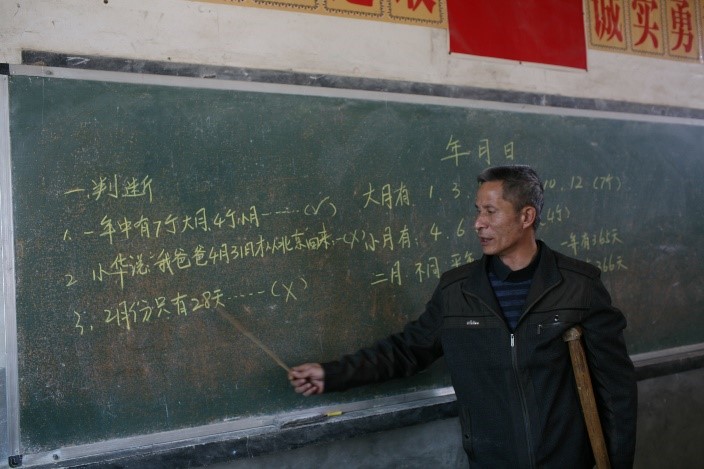 诚实勇
年月日
一.判断
1. 一年中有7个大月,4个小月……(√)
2 小华说:我爸爸4月31日才从北京回来…(×)
3. 2月份只有28天……(×)
大月有. 1. 3. 10. 12 (7个)
小月有: 4. 6 4个)
二月 不同 平年 一年有365天
366天